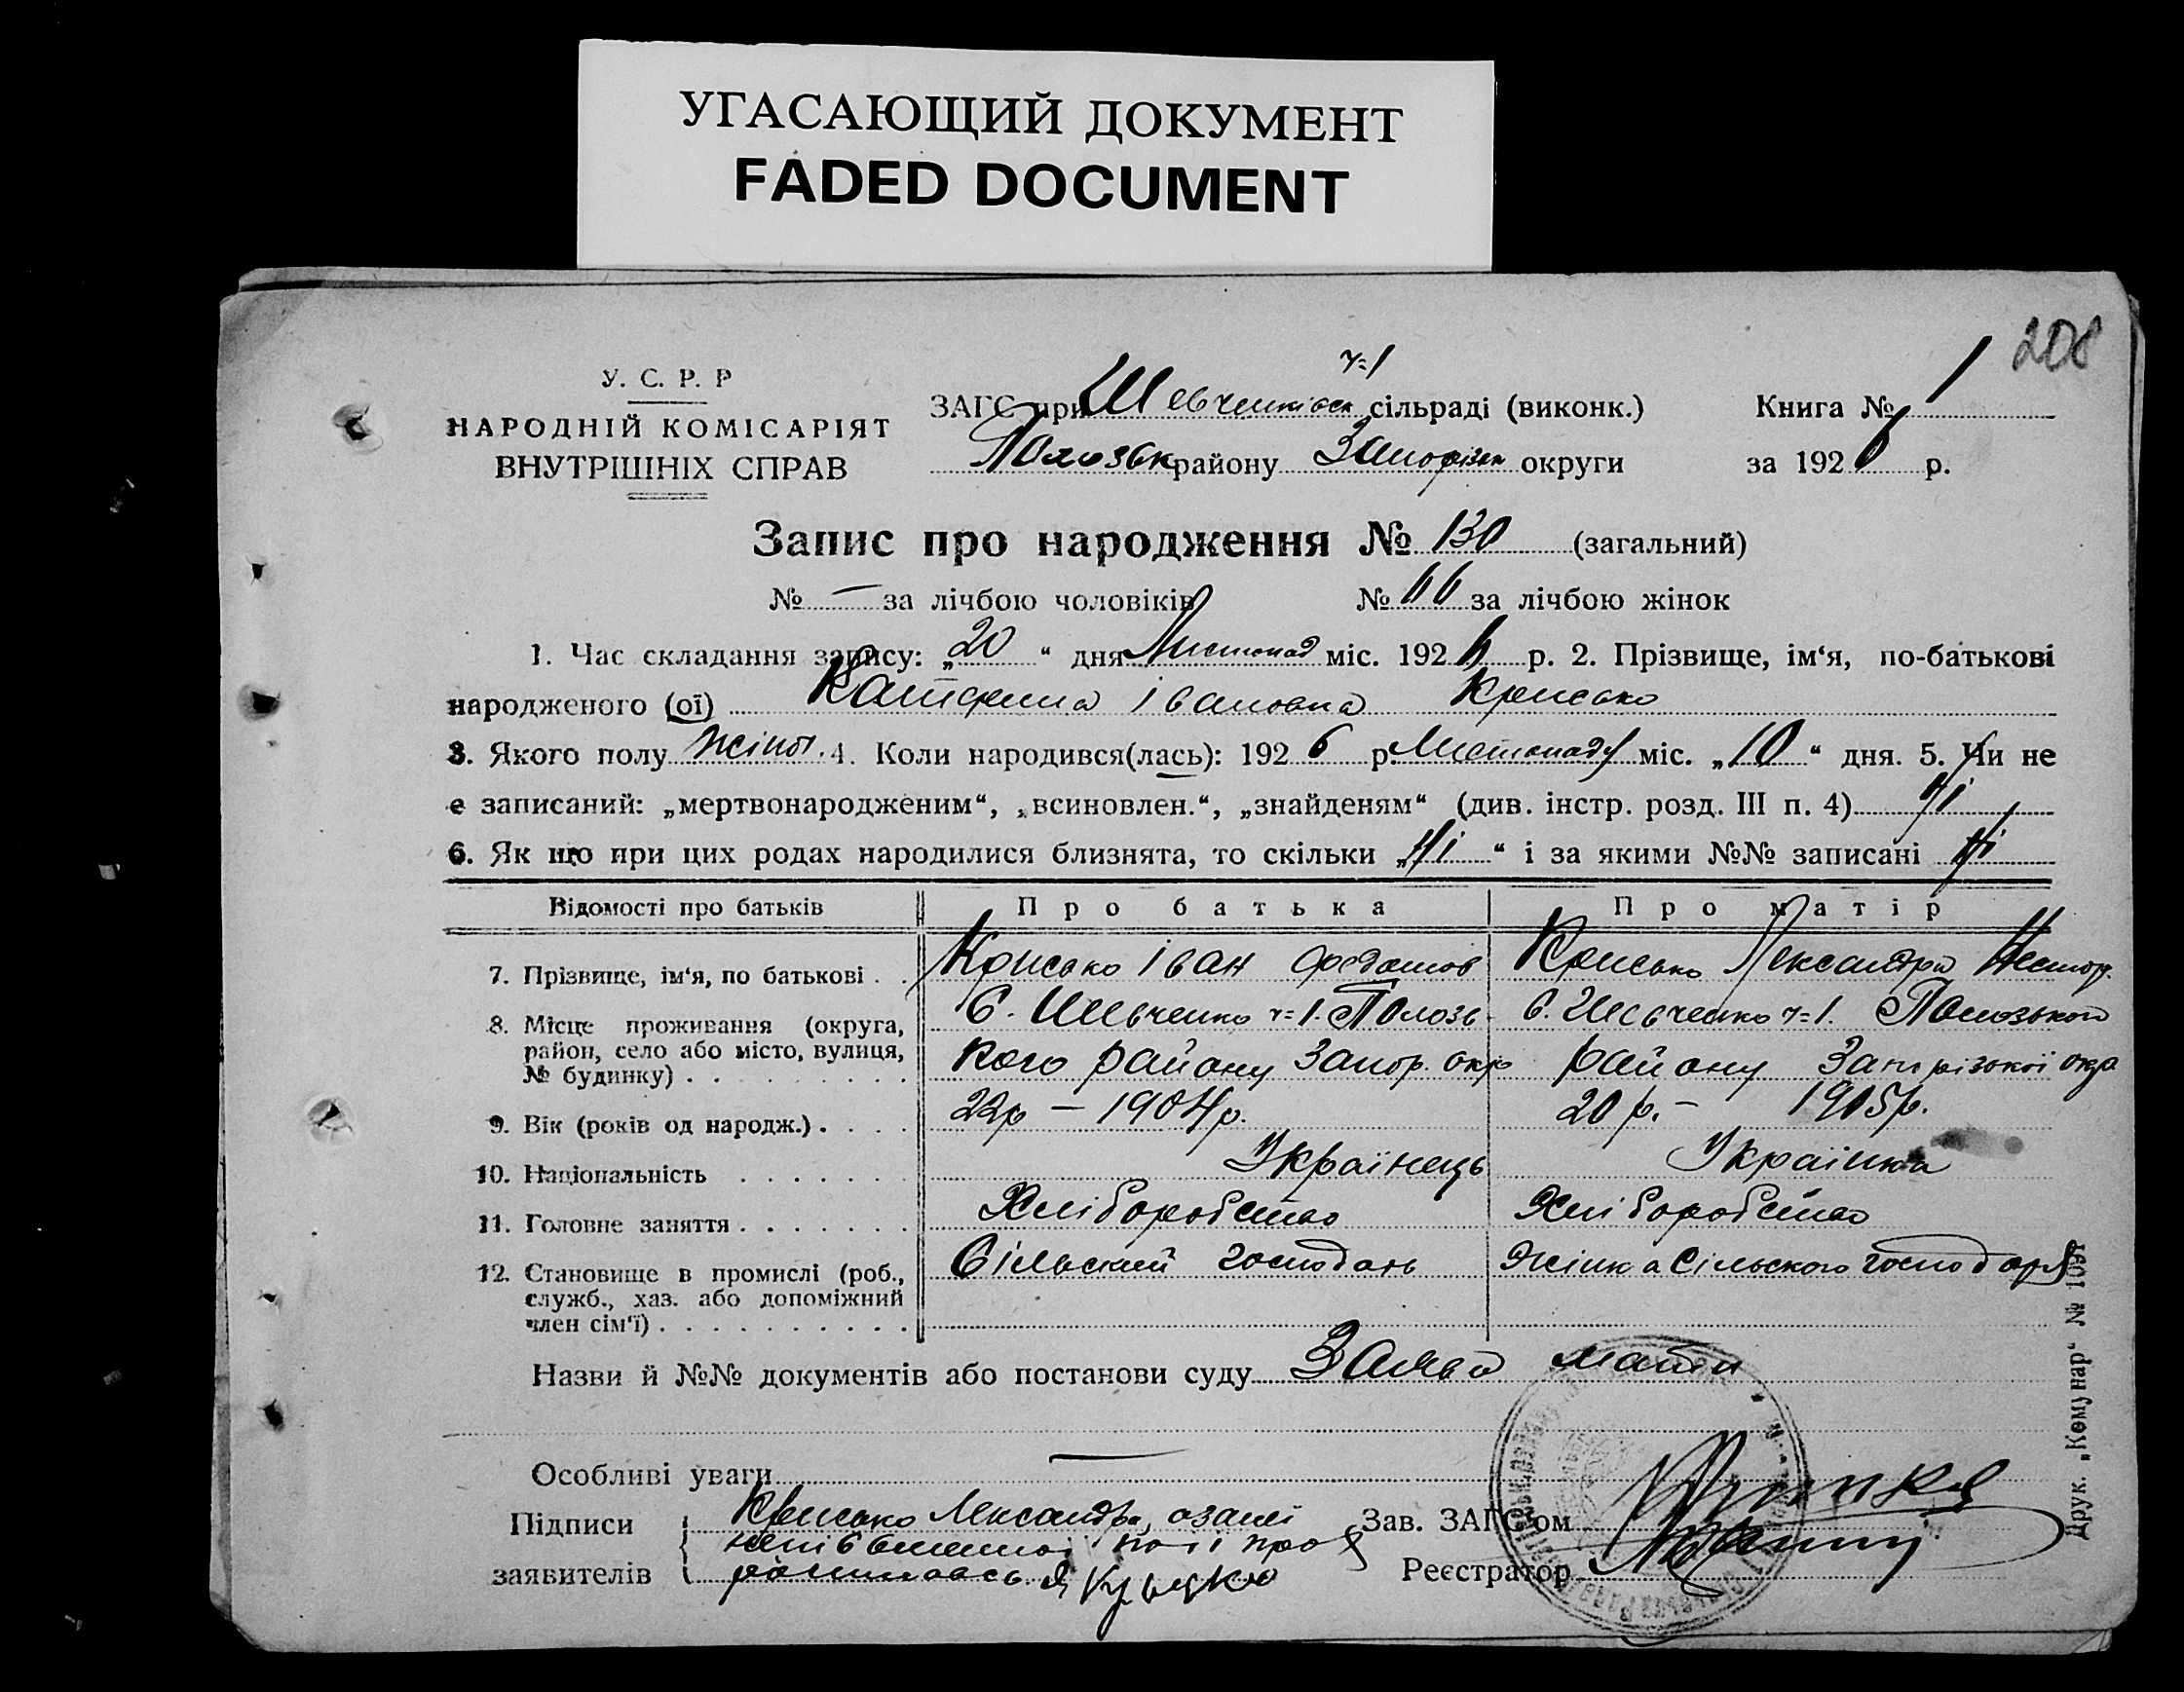 УГАСАЮЩИЙ ДОКУМЕНТ
FADED DOCUMENT
208
У. С. Р. Р
НАРОДНІЙ КОМІСАРІЯТ
ВНУТРІШНІХ СПРАВ
ЗАГС при Шевченківск ч=1 сільраді (виконк.) Книга № 1
Полозьк району Запоріжк округи за 1926 р.
Запис про народження № 130 (загальний)
№ — за лічбою чоловіків № 66 за лічбою жінок
1. Час складання запису: „20“ дня Листопад міс. 1926 р. 2. Прізвище, ім‘я, по-батькові
народженого (ої) Катерина Івановна Крисько
3. Якого полу жіноч. 4. Коли народився(лась): 1926 р. Листопаду міс. „10“ дня. 5. Чи не
є записаний: „мертвонародженим“, „всиновлен.“, „знайденям“ (див. інстр. розд. III п. 4) Ні
6. Як що при цих родах народилися близнята, то скільки „Ні“ і за якими №№ записані Ні
Відомості про батьків Про батька Про матір
7. Прізвище, ім‘я, по батькові . . Крисько Іван Федотов Крисько Лександра Нестор.
8. Місце проживання (округа, район, село або місто, вулиця, № будинку) . . . . . . . . . С. Шевченко ч=1. Полозь- С. Шевченко ч=1. Полозького
кого району Запор. окр району Запорізької окр
9. Вік (років од народж.) . . . . 22р — 1904р. 20 р. — 1905р.
10. Національність . . . . . . . Українець Українка
11. Головне заняття . . . . . . . Хліборобство Хліборобство
12. Становище в промислі (роб., служб., хаз. або допоміжний член сім‘ї) . . . . . . . . . . Сільский господарь Жінка Сільского господаря
Назви й №№ документів або постанови суду Заява мати
Особливі уваги —
Підписи заявителів Крисько Лександра, а за
Зав. ЗАГС‘ом
Реєстратор
Друк. „Комунар“ № 1091